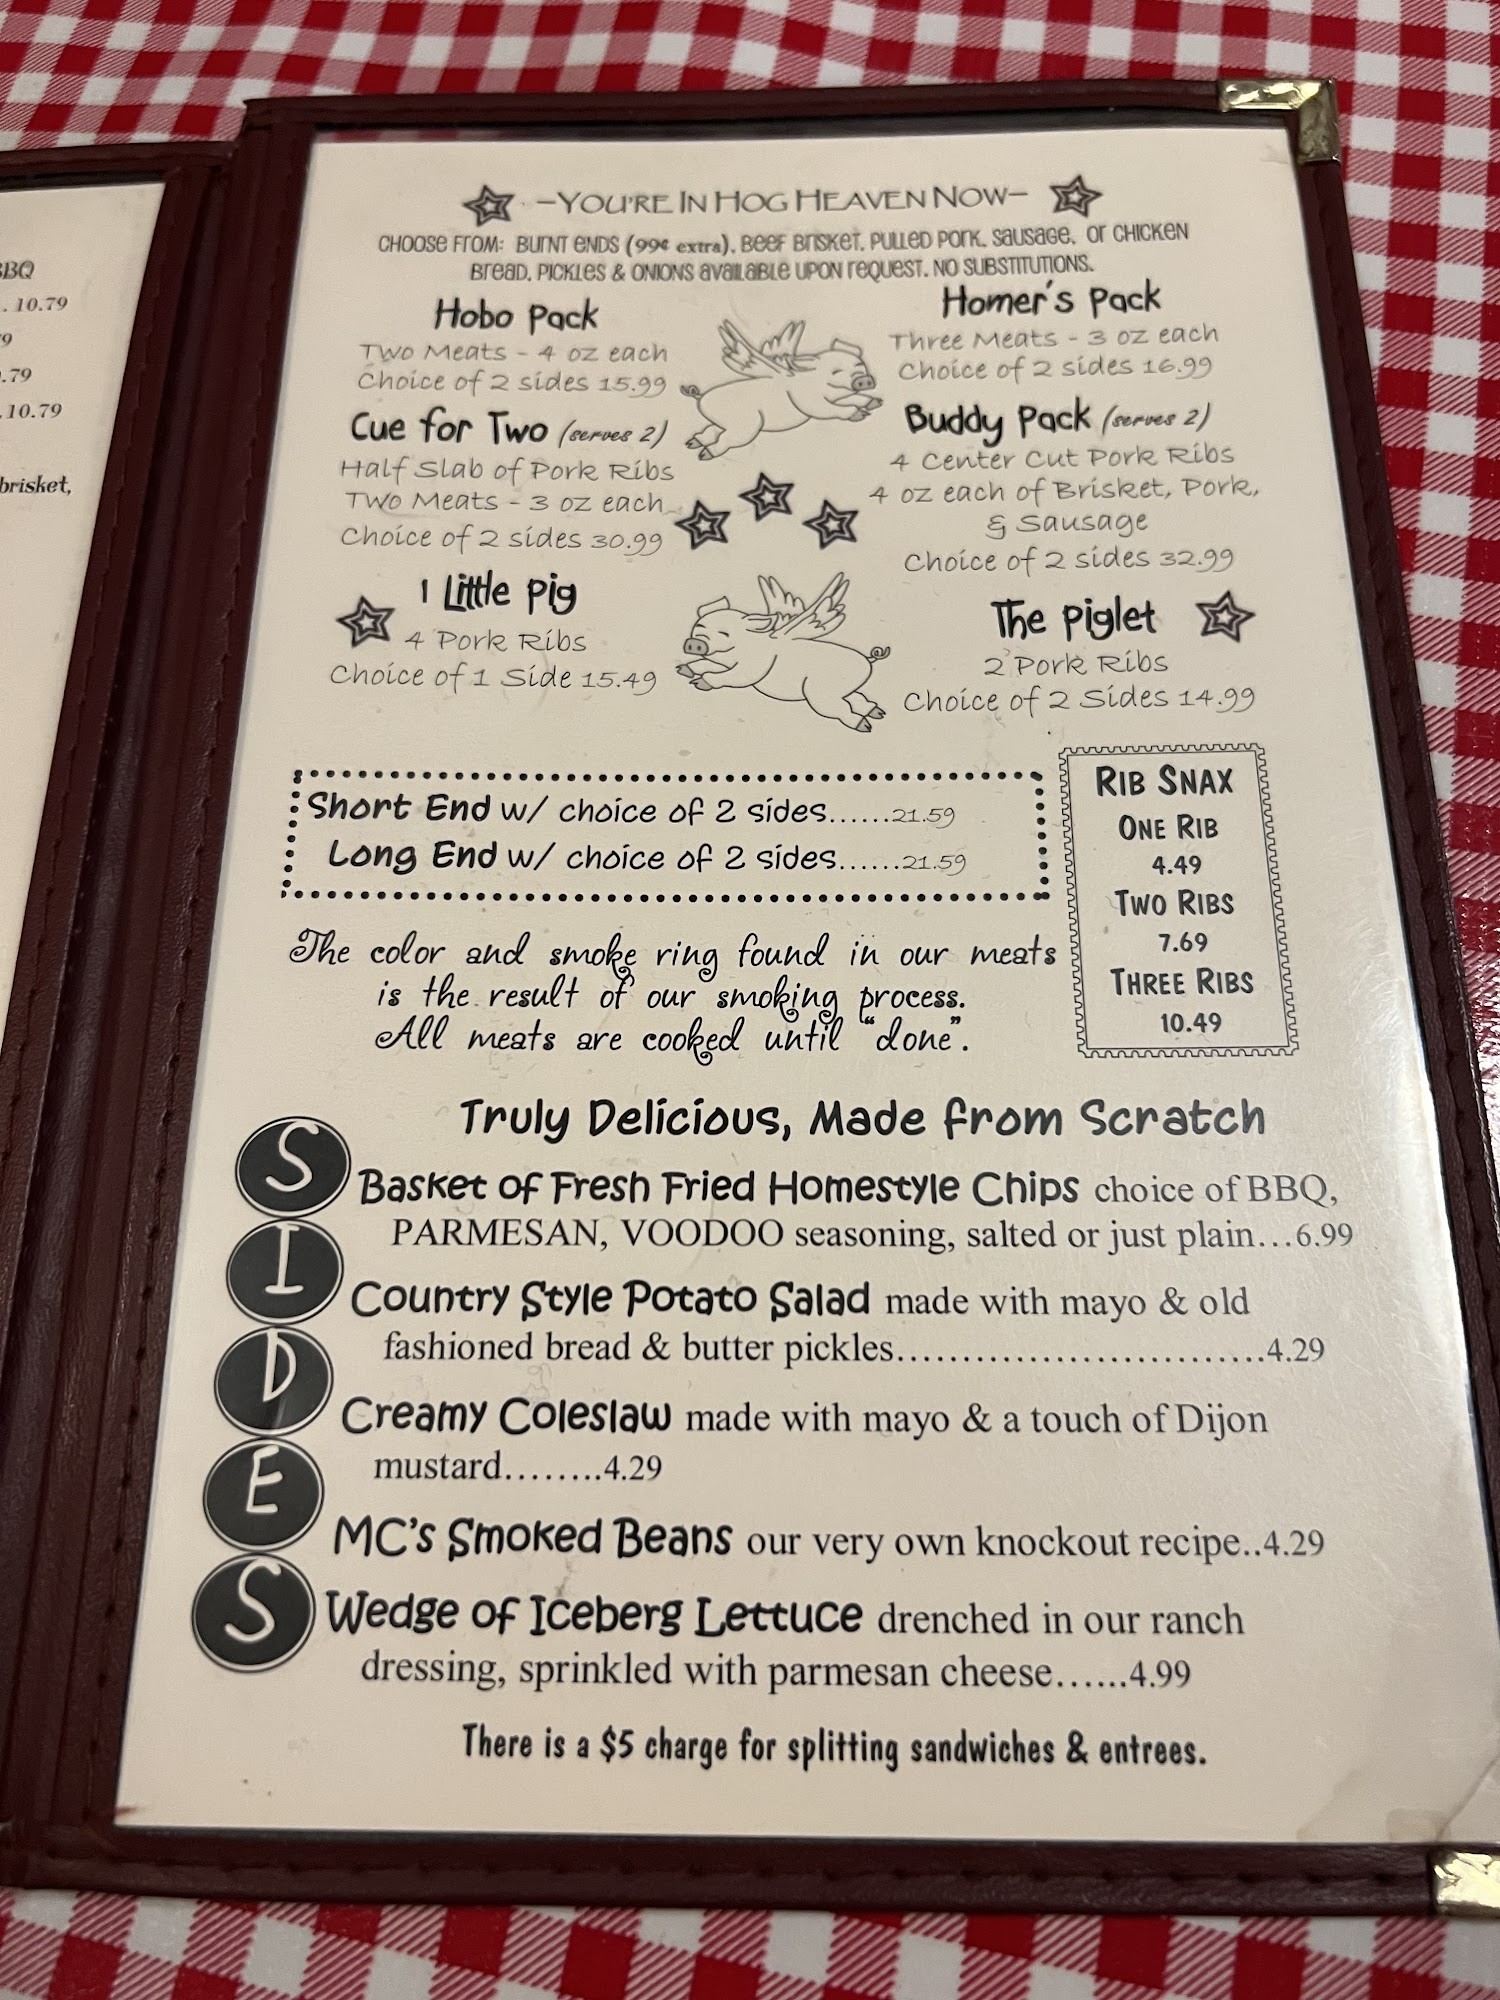 BBQ
. 10.79
9
.79
.10.79
brisket,
-You're In Hog Heaven Now-
CHOOSE FROM: BURNT ENDS (99¢ extra), BEEF BRISKET, PULLED PORK, SAUSAGE, OR CHICKEN
BREAD, PICKLES & ONIONS AVAILABLE UPON REQUEST. NO SUBSTITUTIONS.
Hobo Pack
Two Meats - 4 oz each
Choice of 2 sides 15.99
Homer's Pack
Three Meats - 3 oz each
Choice of 2 sides 16.99
Cue for Two (serves 2)
Half Slab of Pork Ribs
Two Meats - 3 oz each
Choice of 2 sides 30.99
Buddy Pack (serves 2)
4 Center Cut Pork Ribs
4 oz each of Brisket, Pork,
& Sausage
Choice of 2 sides 32.99
1 Little Pig
4 Pork Ribs
Choice of 1 Side 15.49
The Piglet
2 Pork Ribs
Choice of 2 Sides 14.99
Short End w/ choice of 2 sides......21.59
Long End w/ choice of 2 sides......21.59
Rib Snax
One Rib
4.49
Two Ribs
7.69
Three Ribs
10.49
The color and smoke ring found in our meats
is the result of our smoking process.
All meats are cooked until "done".
Truly Delicious, Made from Scratch
SIDES
Basket of Fresh Fried Homestyle Chips choice of BBQ,
PARMESAN, VOODOO seasoning, salted or just plain...6.99
Country Style Potato Salad made with mayo & old
fashioned bread & butter pickles...........................4.29
Creamy Coleslaw made with mayo & a touch of Dijon
mustard........4.29
MC's Smoked Beans our very own knockout recipe..4.29
Wedge of Iceberg Lettuce drenched in our ranch
dressing, sprinkled with parmesan cheese......4.99
There is a $5 charge for splitting sandwiches & entrees.